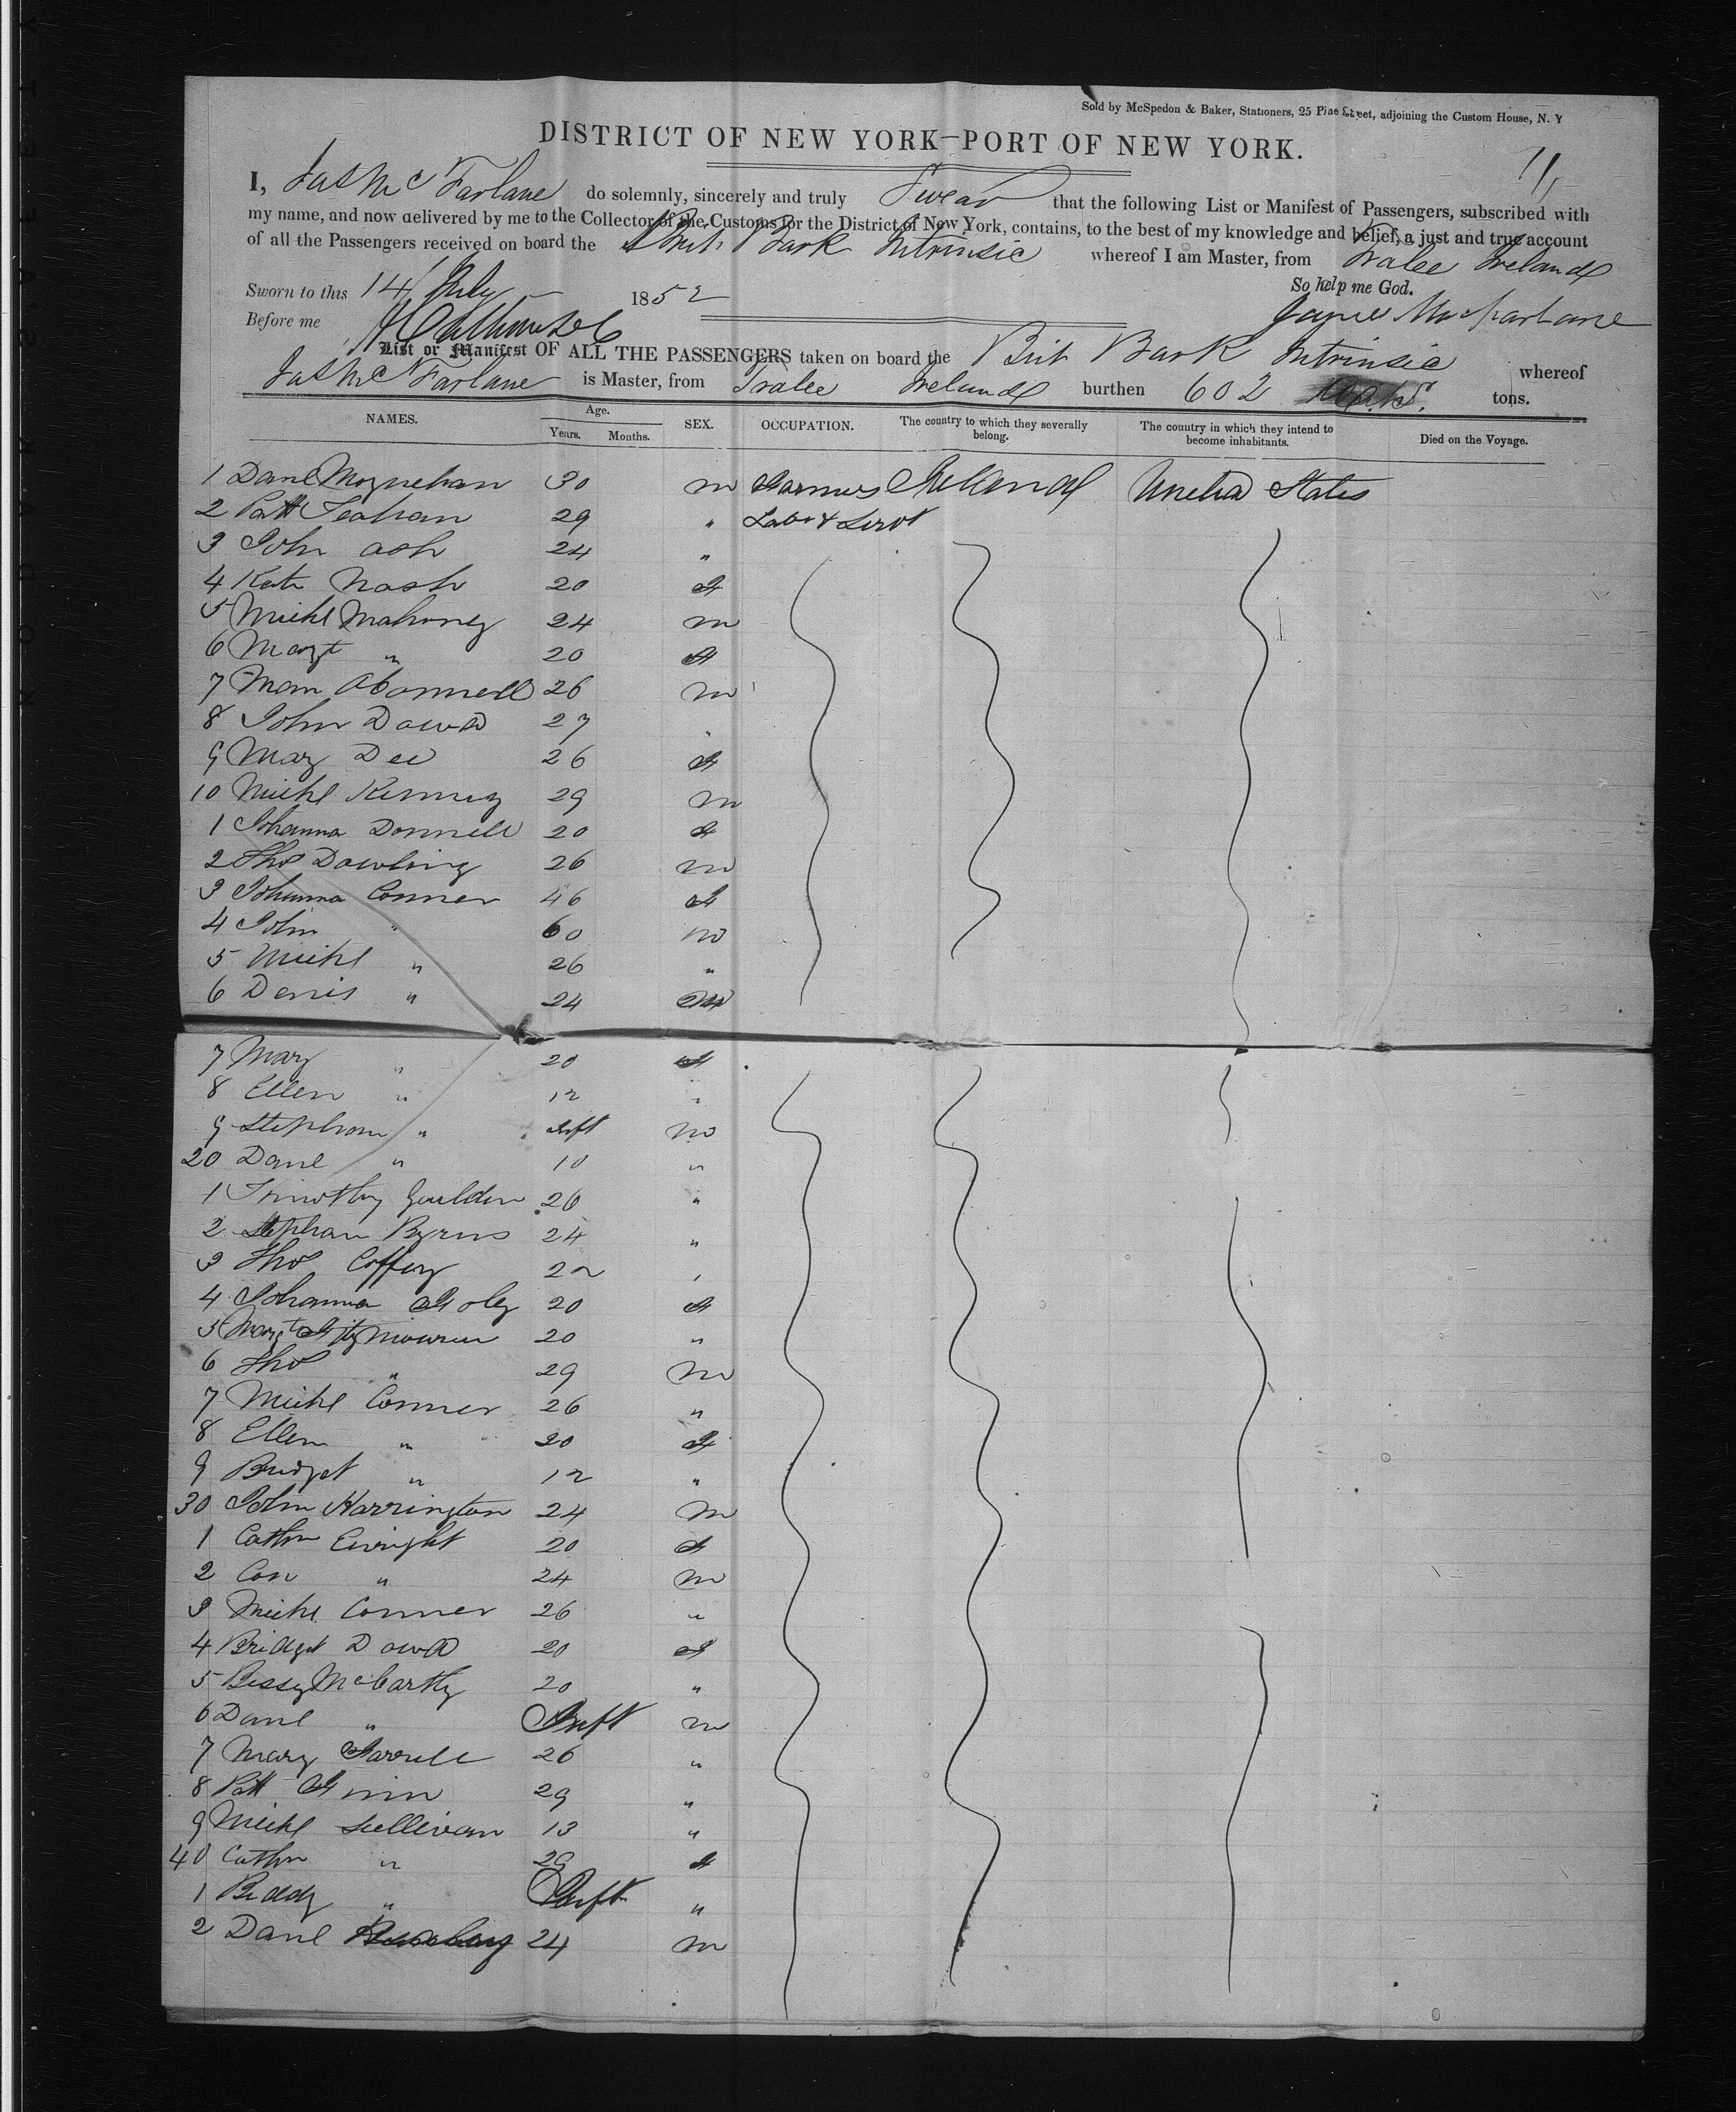 Sold by McSpedon & Baker, Stationers, 25 Pine Street, adjoining the Custom House, N. Y
DISTRICT OF NEW YORK—PORT OF NEW YORK.
11
I, Jas Mc Farlane do solemnly, sincerely and truly Swear that the following List or Manifest of Passengers, subscribed with
my name, and now delivered by me to the Collector of the Customs for the District of New York, contains, to the best of my knowledge and belief, a just and true account
of all the Passengers received on board the Brit Bark Intrinsic whereof I am Master, from Tralee Ireland
Sworn to this 14 July 1852 So help me God.
Before me James Macfarlane
List or Manifest OF ALL THE PASSENGERS taken on board the Brit Bark Intrinsic whereof
Jas Mc Farlane is Master, from Tralee Ireland burthen 602 tons.
NAMES. Age. Years. Months. SEX. OCCUPATION. The country to which they severally belong. The country in which they intend to become inhabitants. Died on the Voyage.
1 Danl Moynehan 30 m Farmers Ireland United States
2 Patt Leahan 29 " Labr & Servt
3 John ash 24 "
4 Kate Nash 20 f
5 Michl Mahoney 24 m
6 Margt " 20 f
7 Mam OConnell 26 m
8 John Dowd 27 "
9 Mary Dee 26 f
10 Michl Kenney 29 m
1 Johanna Donnell 20 f
2 Thos Dowling 26 m
3 Johanna Conner 46 f
4 John " 60 m
5 Michl " 26 "
6 Denis " 24 m
7 Mary " 20 f
8 Ellen " 12 "
9 Stephan " Inft m
20 Danl " 10 "
1 Timothy Goulden 26 "
2 Stephan Byrns 24 "
3 Thos Coffey 22 "
4 Johanna Foley 20 f
5 Margt Fitzmourice 20 "
6 Thos " 29 m
7 Michl Conner 26 "
8 Ellen " 20 f
9 Bridget " 12 "
30 John Harrington 24 m
1 Cathn Enright 20 f
2 Con " 24 m
3 Michl Conner 26 "
4 Bridget Dowd 20 f
5 Bessy McCarthy 20 "
6 Danl " Inft m
7 Mary Farrell 26 "
8 Patt Finn 29 "
9 Michl Sullivan 13 "
40 Cathn " 29 f
1 Biddy " Inft "
2 Danl 24 m